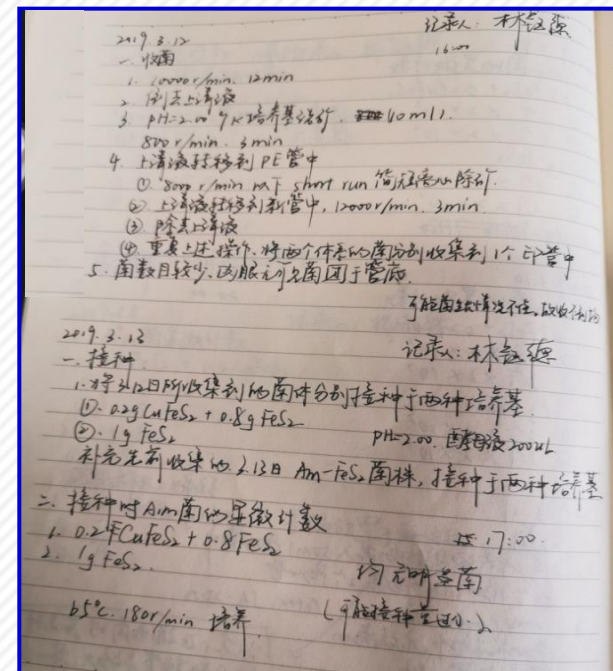 记录人: 林
2019.3.12
16:00
一. 收菌
1. 10000r/min. 12min
2. 倒去上清液
3. pH=2.00 9K培养基溶矿. 10ml).
800r/min. 3min
4. 上清液转移到PE管中
①. 800r/min 以下 short run 简短离心除矿.
②. 上清液转移到新管中, 12000r/min. 3min.
③ 除去上清液
④ 重复上述操作. 将两个体系的菌分别收集到1个EP管中
5. 菌数目较少, 肉眼可见菌团于管底.
可能菌生长情况不佳, 故收
2019.3.13
记录人: 林
一. 接种
1. 将3.12日所收集到的菌体分别接种于两种培养基
①. 0.2g CuFeS2 + 0.8g FeS2
②. 1g FeS2
pH=2.00. 酵母液200uL
补充先前收集的 3.13日 Am-FeS2菌株, 接种于两种培养基
二. 接种时Am菌的显微计数
1. 0.2 CuFeS2 + 0.8FeS2
17:00.
2. 1g FeS2.
均无明显菌
(可能接种量过小.)
65℃. 180r/min 培养.